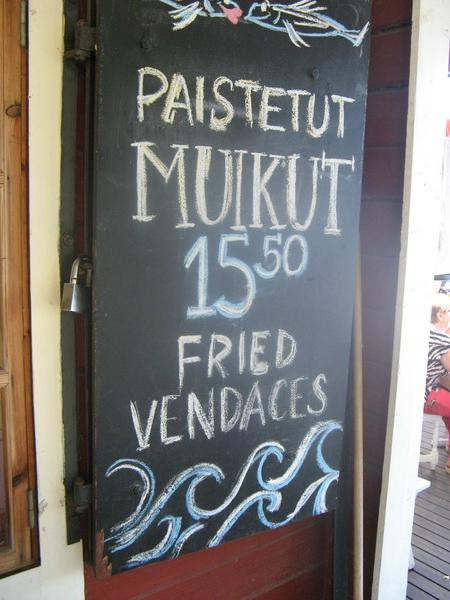 PAISTETUT
MUIKUT
15 50
FRIED
VENDACES